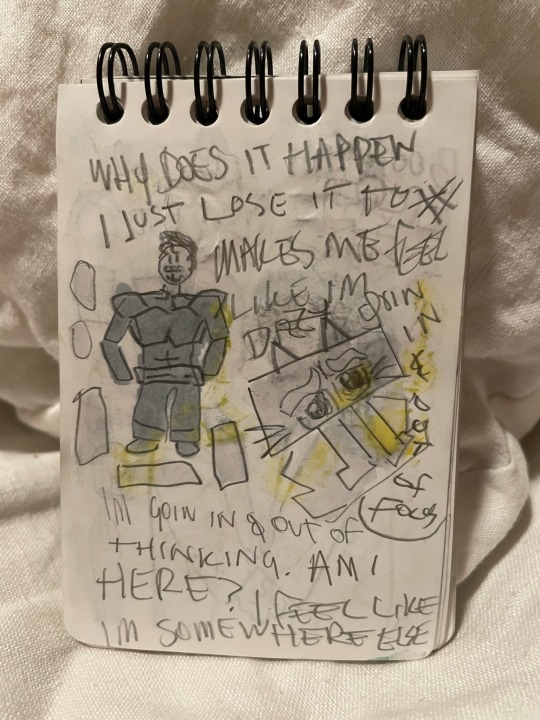 WHY DOES IT HAPPEN
I JUST LOSE IT TO
MAKES ME FEEL
LIKE I'M
GOIN
IN
&
OUT
OF
FOCUS
IM GOIN IN & OUT OF
THINKING. AM I
HERE? I FEEL LIKE
IM SOMEWHERE ELSE